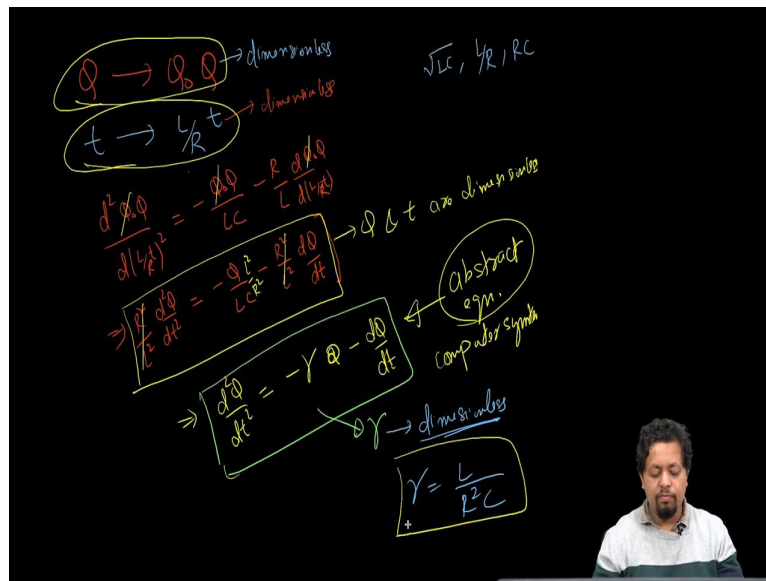 Q → Q₀ Q → dimensionless
√LC, L/R, RC
t → L/R t → dimensionless
d² Q₀Q / d(L/R t)² = - Q₀Q / LC - R/L dQ₀Q / d(L/R t)
⇒ R²/L² d²Q/dt² = - Q/LC L²/R² - R²/L² dQ/dt → Q & t are dimensionless
⇒ d²Q/dt² = - γ Q - dQ/dt ← abstract eqn.
computer symbol
γ → dimesionless
γ = L / R²C